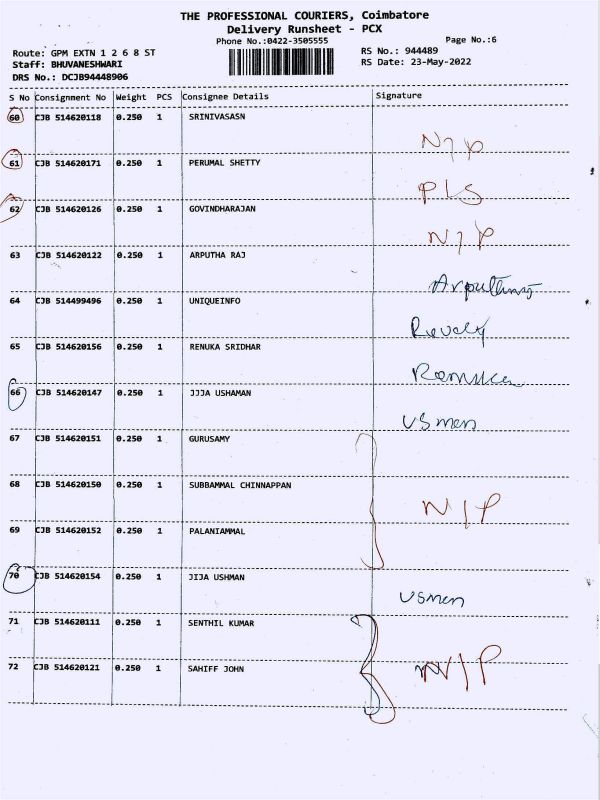 THE PROFESSIONAL COURIERS, Coimbatore
Delivery Runsheet - PCX
Phone No.:0422-3505555
Page No.:6
Route: GPM EXTN 1 2 6 8 ST
RS No.: 944489
Staff: BHUVANESHWARI
RS Date: 23-May-2022
DRS No.: DCJB94448906
S No Consignment No Weight PCS Consignee Details Signature
60 CJB 514620118 0.250 1 SRINIVASASN
N/P
61 CJB 514620171 0.250 1 PERUMAL SHETTY
P/S
62 CJB 514620126 0.250 1 GOVINDHARAJAN
N/P
63 CJB 514620122 0.250 1 ARPUTHA RAJ
64 CJB 514499496 0.250 1 UNIQUEINFO
65 CJB 514620156 0.250 1 RENUKA SRIDHAR
66 CJB 514620147 0.250 1 JIJA USHAMAN
usmen
67 CJB 514620151 0.250 1 GURUSAMY
68 CJB 514620150 0.250 1 SUBBAMMAL CHINNAPPAN
N/P
69 CJB 514620152 0.250 1 PALANIAMMAL
70 CJB 514620154 0.250 1 JIJA USHMAN
usmen
71 CJB 514620111 0.250 1 SENTHIL KUMAR
72 CJB 514620121 0.250 1 SAHIFF JOHN
N/P